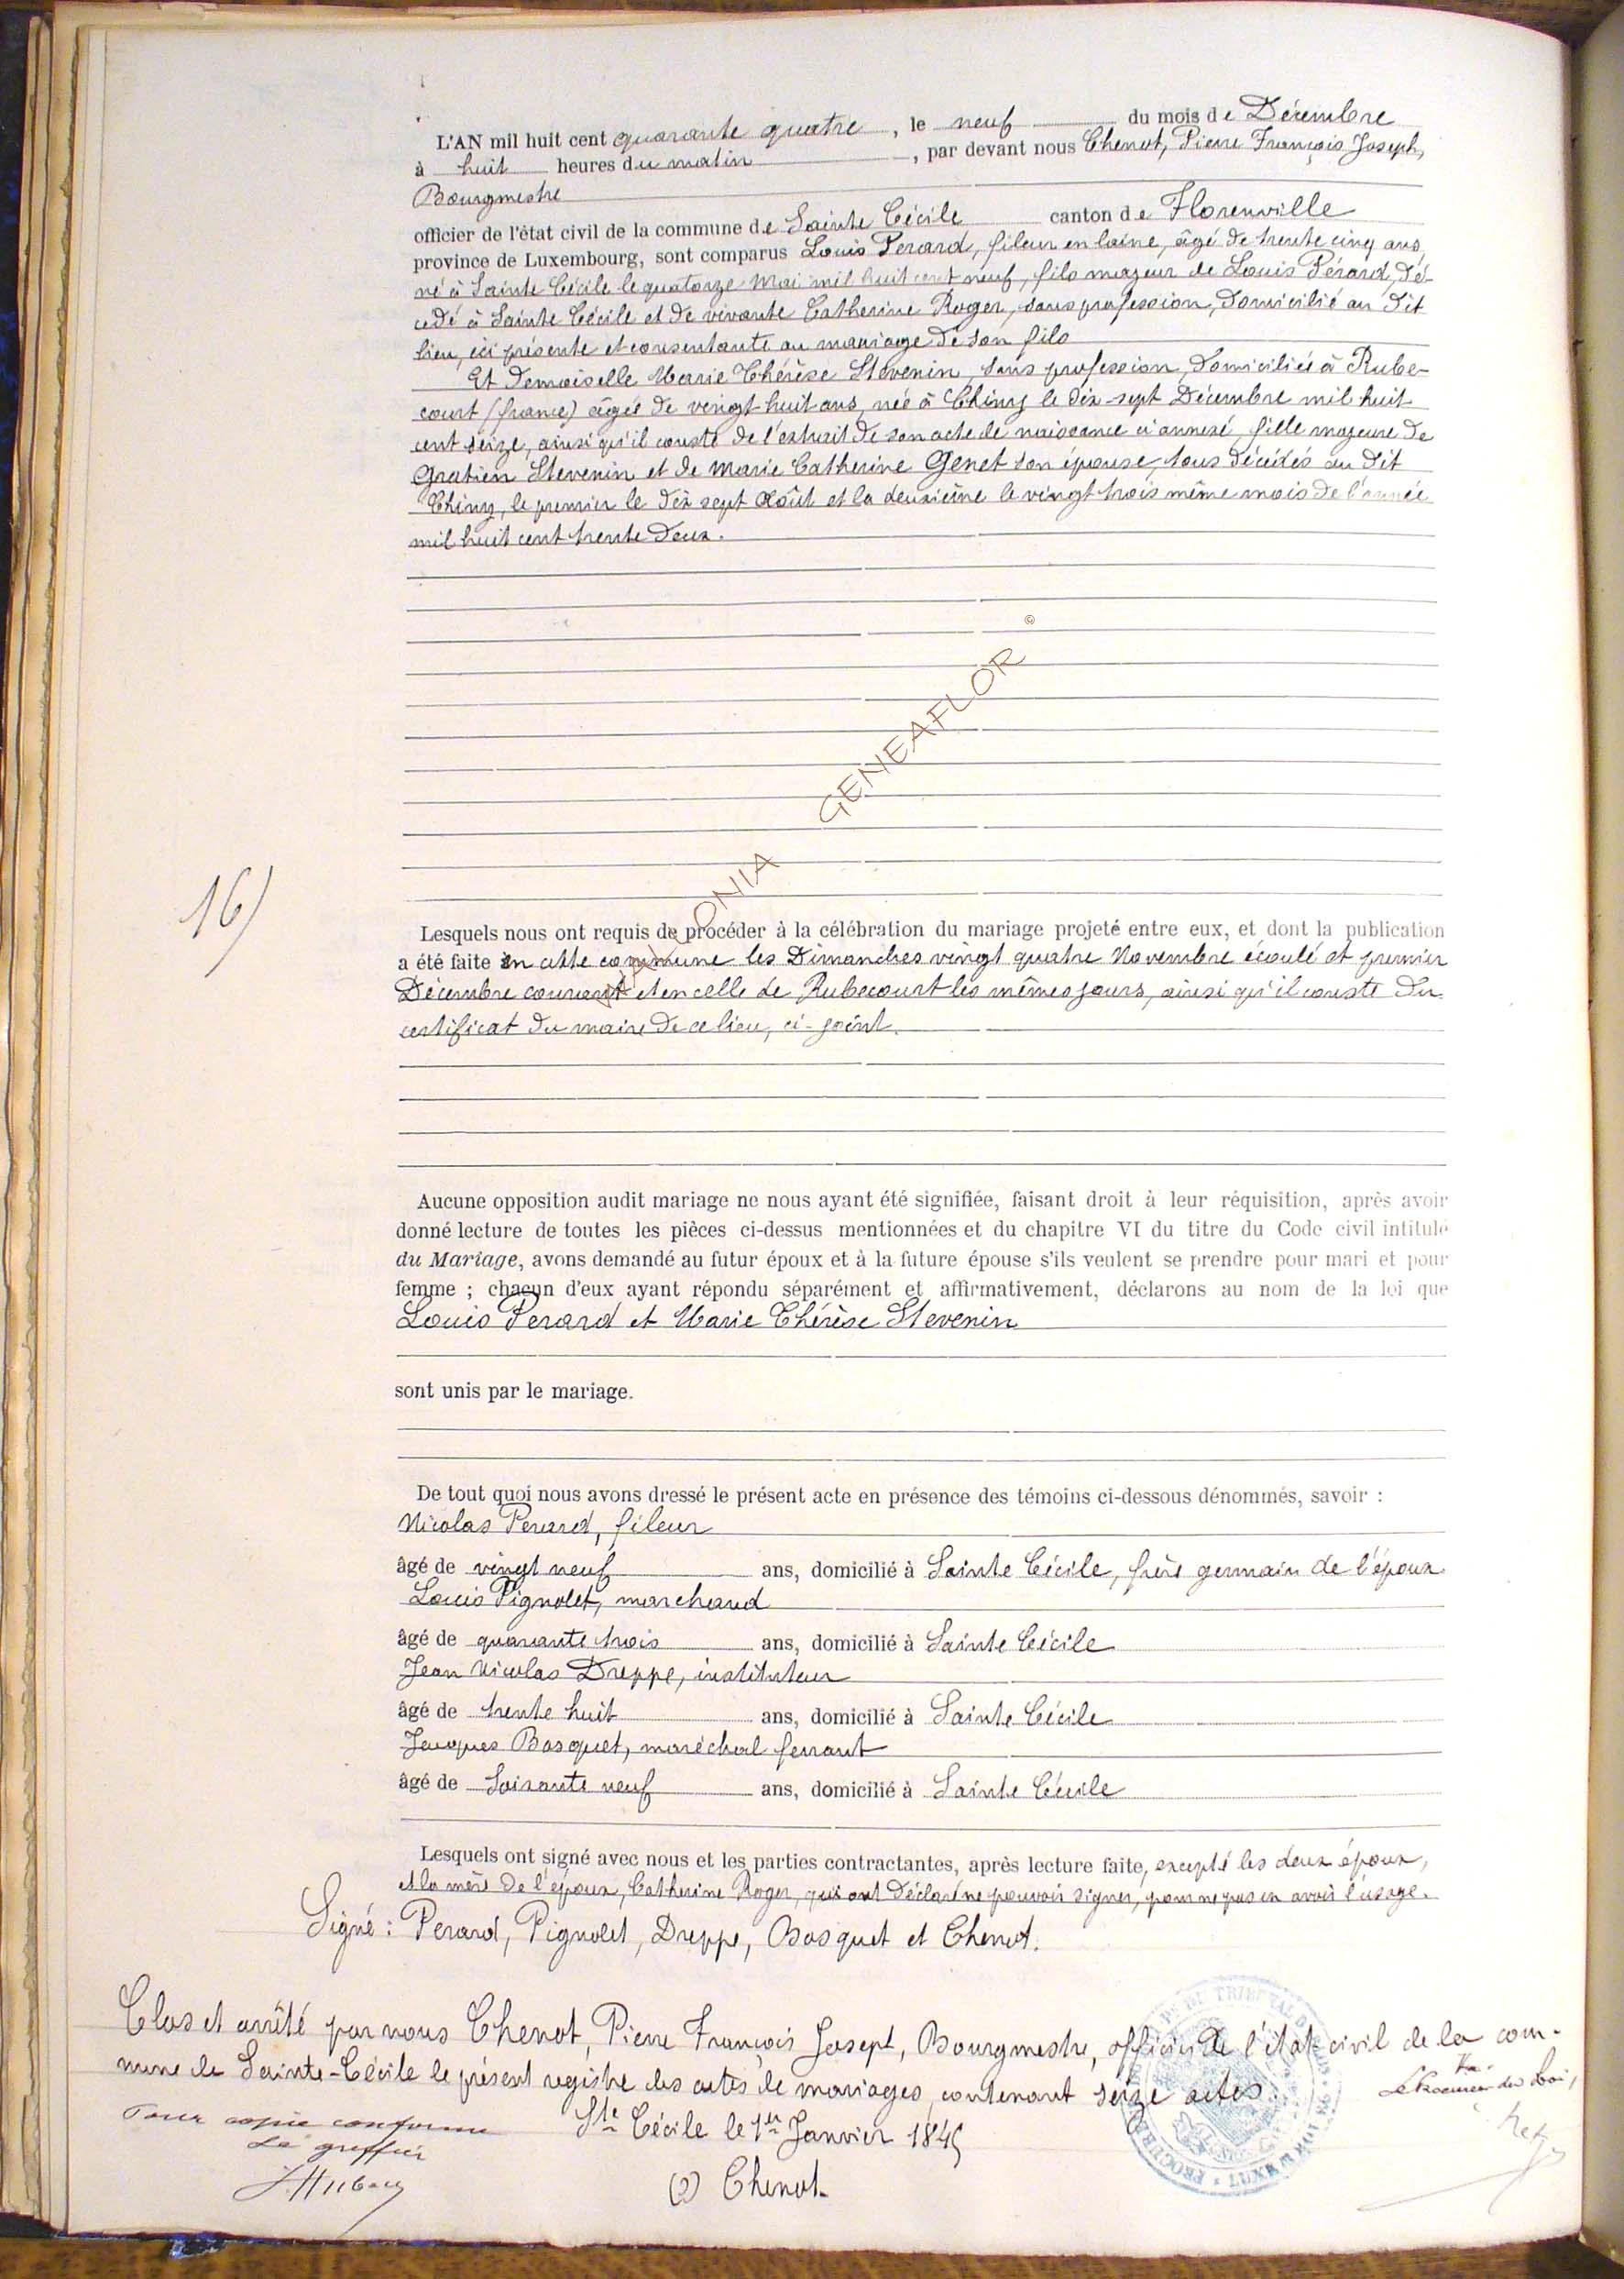 L'AN mil huit cent quarante quatre, le neuf du mois de Décembre
à huit heures du matin, par devant nous Chenot, Pierre François Joseph,
Bourgmestre
officier de l'état civil de la commune de Sainte Cécile canton de Florenville
province de Luxembourg, sont comparus Louis Perard, fileur en laine, âgé de trente cinq ans,
né à Sainte Cécile le quatorze Mai mil huit cent neuf, fils majeur de Louis Pérard, dé-
cedé à Sainte Cécile et de vivante Catherine Roger, sans profession, domicilié au dit
lieu, ici présente et consentante au mariage de son fils
Et Demoiselle Marie Thérèse Stevenin, sans profession, domiciliée à Rube-
court (france) âgée de vingt huit ans, née à Chiny le dix-sept Décembre mil huit
cent seize, ainsi qu'il conste de l'extrait de son acte de naissance ci annexé, fille majeure de
Gratien Stevenin et de Marie Catherine Genet son épouse, tous décédés au dit
Chiny, le premier le dix sept Août et la deuxième le vingt trois même mois de l'année
mil huit cent trente deux.
©
GENEAFLOR
16)
Lesquels nous ont requis de procéder à la célébration du mariage projeté entre eux, et dont la publication
a été faite en cette commune les Dimanches vingt quatre Novembre écoulé et premier
Décembre courant et en celle de Rubecourt les mêmes jours, ainsi qu'il conste du
certificat du maire de ce lieu, ci-joint.
Aucune opposition audit mariage ne nous ayant été signifiée, faisant droit à leur réquisition, après avoir
donné lecture de toutes les pièces ci-dessus mentionnées et du chapitre VI du titre du Code civil intitulé
du Mariage, avons demandé au futur époux et à la future épouse s'ils veulent se prendre pour mari et pour
femme ; chacun d'eux ayant répondu séparément et affirmativement, déclarons au nom de la loi que
Louis Perard et Marie Thérèse Stevenin
sont unis par le mariage.
De tout quoi nous avons dressé le présent acte en présence des témoins ci-dessous dénommés, savoir :
Nicolas Perard, fileur
âgé de vingt neuf ans, domicilié à Sainte Cécile, frère germain de l'époux
Louis Pignolet, marchand
âgé de quarante trois ans, domicilié à Sainte Cécile
Jean Nicolas Dreppe, instituteur
âgé de trente huit ans, domicilié à Sainte Cécile
Jacques Bosquet, maréchal ferrant
âgé de Soixante neuf ans, domicilié à Sainte Cécile
Lesquels ont signé avec nous et les parties contractantes, après lecture faite, excepté les deux époux,
et la mère de l'époux, Catherine Roger, qui ont déclaré ne pouvoir signer, pour ne pas en avoir l'usage.
Signé : Perard, Pignolet, Dreppe, Bosquet et Chenot.
Clos et arrêté par nous Chenot, Pierre François Joseph, Bourgmestre, officier de l'état civil de la com-
mune de Sainte-Cécile le présent registre des actes de mariages, contenant seize actes.
Ste Cécile le 1er Janvier 1845
Le Procureur du Roi,
Pour copie conforme
Le greffier
(s) Chenot